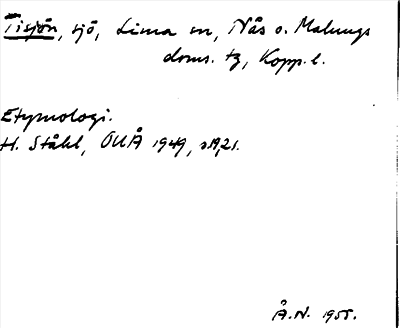 Tisjön, sjö, Lima sn, Nås o. Malungs
doms. tg, Kopp. l.
Etymologi.
H. Ståhl, OUÅ 1949, s. 19, 21.
Å. N. 1955.